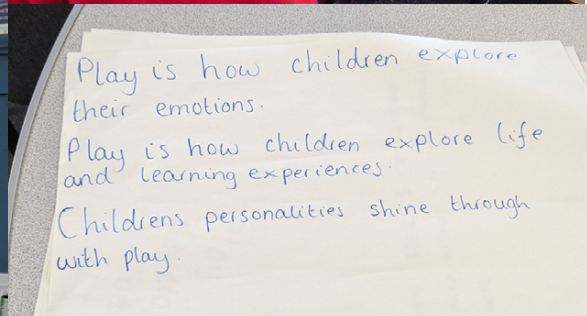 Play is how children explore
their emotions.
Play is how children explore life
and learning experiences.
Childrens personalities shine through
with play.